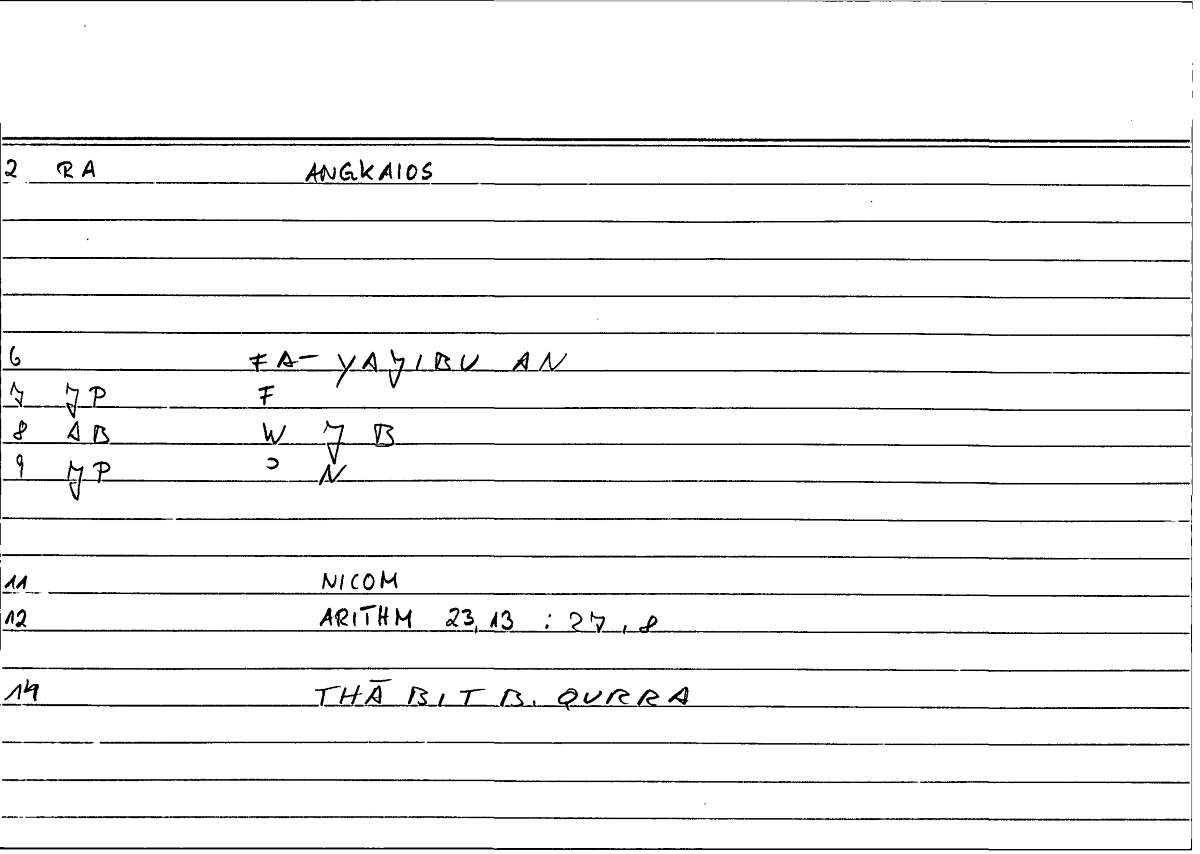 2 RA ANGKAIOS
6 FA- YAJIBU AN
7 JP F
8 AB W J B
9 JP ʾ N
11 NICOM
12 ARITHM 23,13 : 27,8
14 THĀBIT B. QURRA